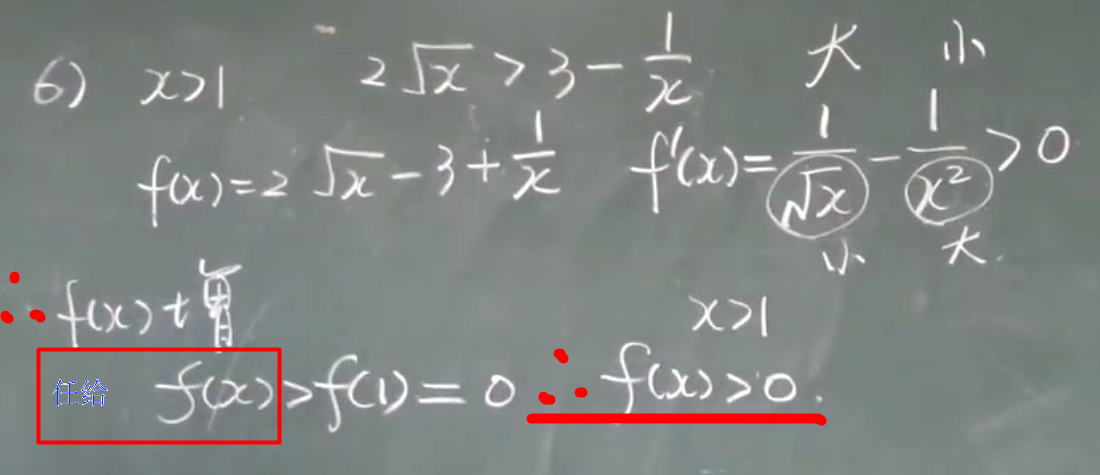 6) x>1 2√x > 3 - 1/x 大 小
f(x)=2√x-3+1/x f'(x)=1/√x - 1/x² > 0
小 大.
∴ f(x)
x>1
任给 f(x)>f(1)=0 ∴ f(x)>0.